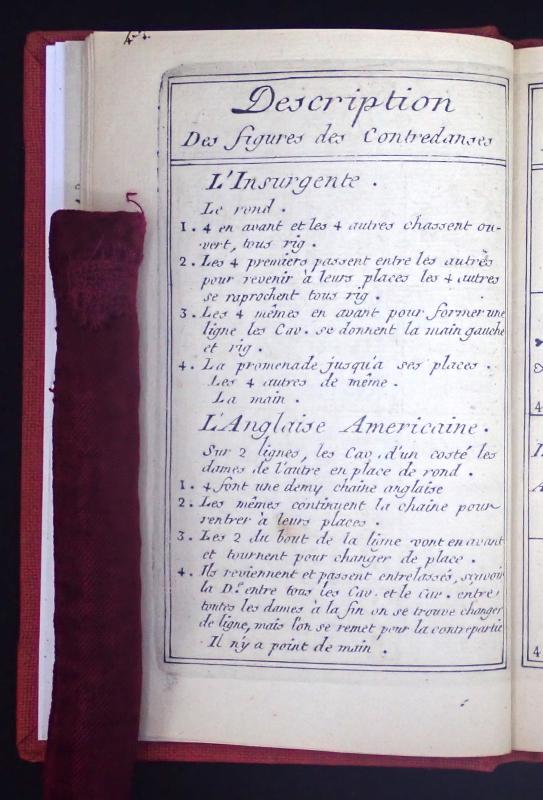 Description
Des figures des Contredanses
L'Insurgente.
Le rond.
1. 4 en avant et les 4 autres chassent ou-
vert, tous rig.
2. Les 4 premiers passent entre les autrês
pour revenir à leurs places les 4 autres
se raprochent tous rig.
3. Les 4 mêmes en avant pour former une
ligne les Cav. se donnent la main gauche
et rig.
4. La promenade jusqu'a ses places.
Les 4 autres de même.
La main.
L'Anglaise Americaine.
Sur 2 lignes, les Cav. d'un costé les
dames de l'autre en place de rond.
1. 4 font une demy chaine anglaise
2. Les mêmes continuent la chaine pour
rentrer à leurs places.
3. Les 2 du bout de la ligne vont en avant
et tournent pour changer de place.
4. Ils reviennent et passent entrelassés, sçavoir
la D.e entre tous les Cav. et le Cav. entre
toutes les dames à la fin on se trouve changer
de ligne, mais l'on se remet pour la contrepartie
Il n'y a point de main.